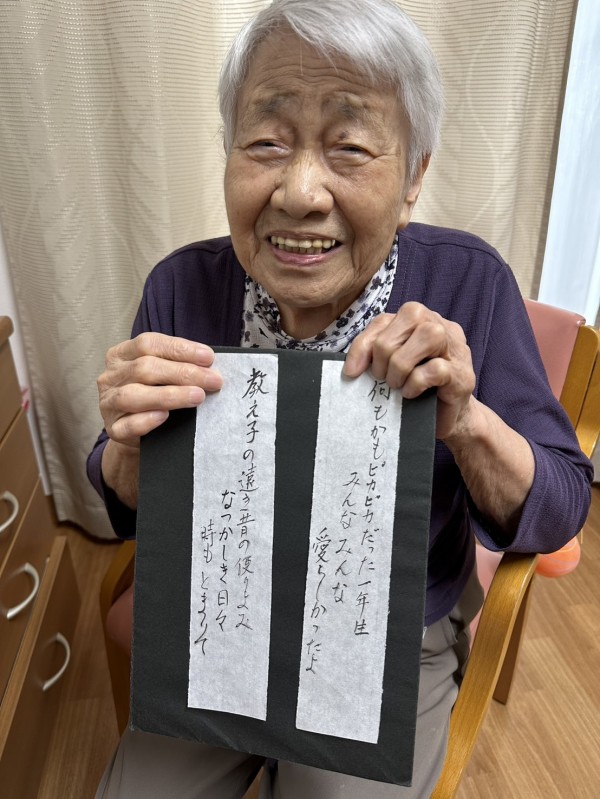 何もかもピカピカだった一年生
みんなみんな
愛らしかったよ
教え子の遠き昔の便りよみ
なつかしき日々
時もとまりて